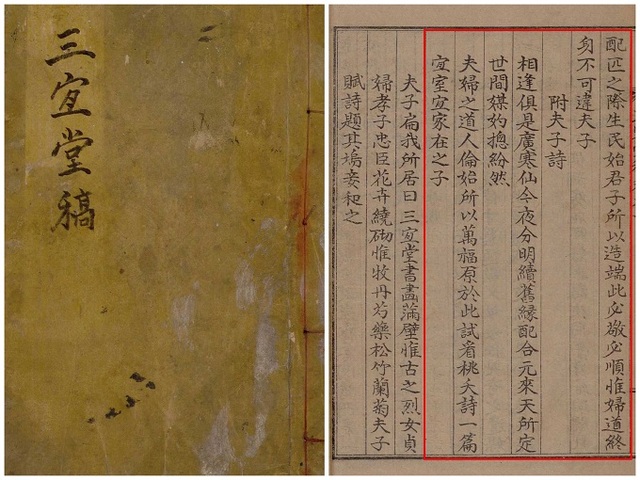 三宜堂稿
配匹之際生民始君子所以造端此必敬必順惟婦道終
身不可違夫子
附夫子詩
相逢俱是廣寒仙今夜分明續舊緣配合元來天所定
世間媒妁摠紛然
夫婦之道人倫始所以萬福原於此試看桃夭詩一篇
宜室宜家在之子
夫子扁我所居曰三宜堂書畵滿壁惟古之烈女貞
婦孝子忠臣花卉繞砌惟牧丹芍藥松竹蘭菊夫子
賦詩題其塢妾和之